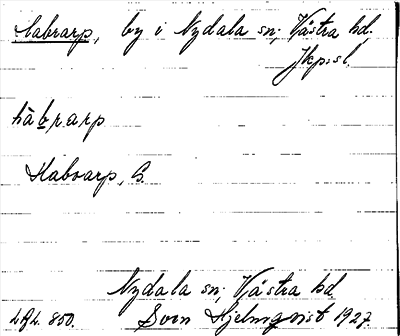 Habrarp, by i Nydala sn, Västra hd.
Jkp.sl.
hàbrarp
Habrarp, G.
Nydala sn, Västra hd
LAL. 850. Sven Hjelmqvist 1927